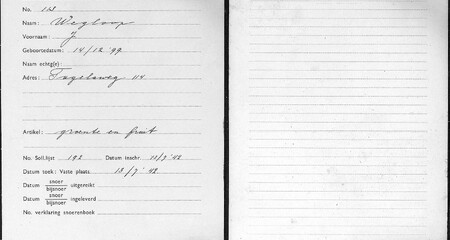 No. 113
Naam: Wegloop
Voornaam: J.
Geboortedatum: 14/12 '99
Naam echtg(e):
Adres: Togelsweg 114
Artikel: groente en fruit
No. Soll.lijst 192 Datum inschr. 13/7 '42
Datum toek: Vaste plaats 13/7 '42
Datum snoer/bijsnoer uitgereikt
Datum snoer/bijsnoer ingeleverd
No. verklaring snoerenboek